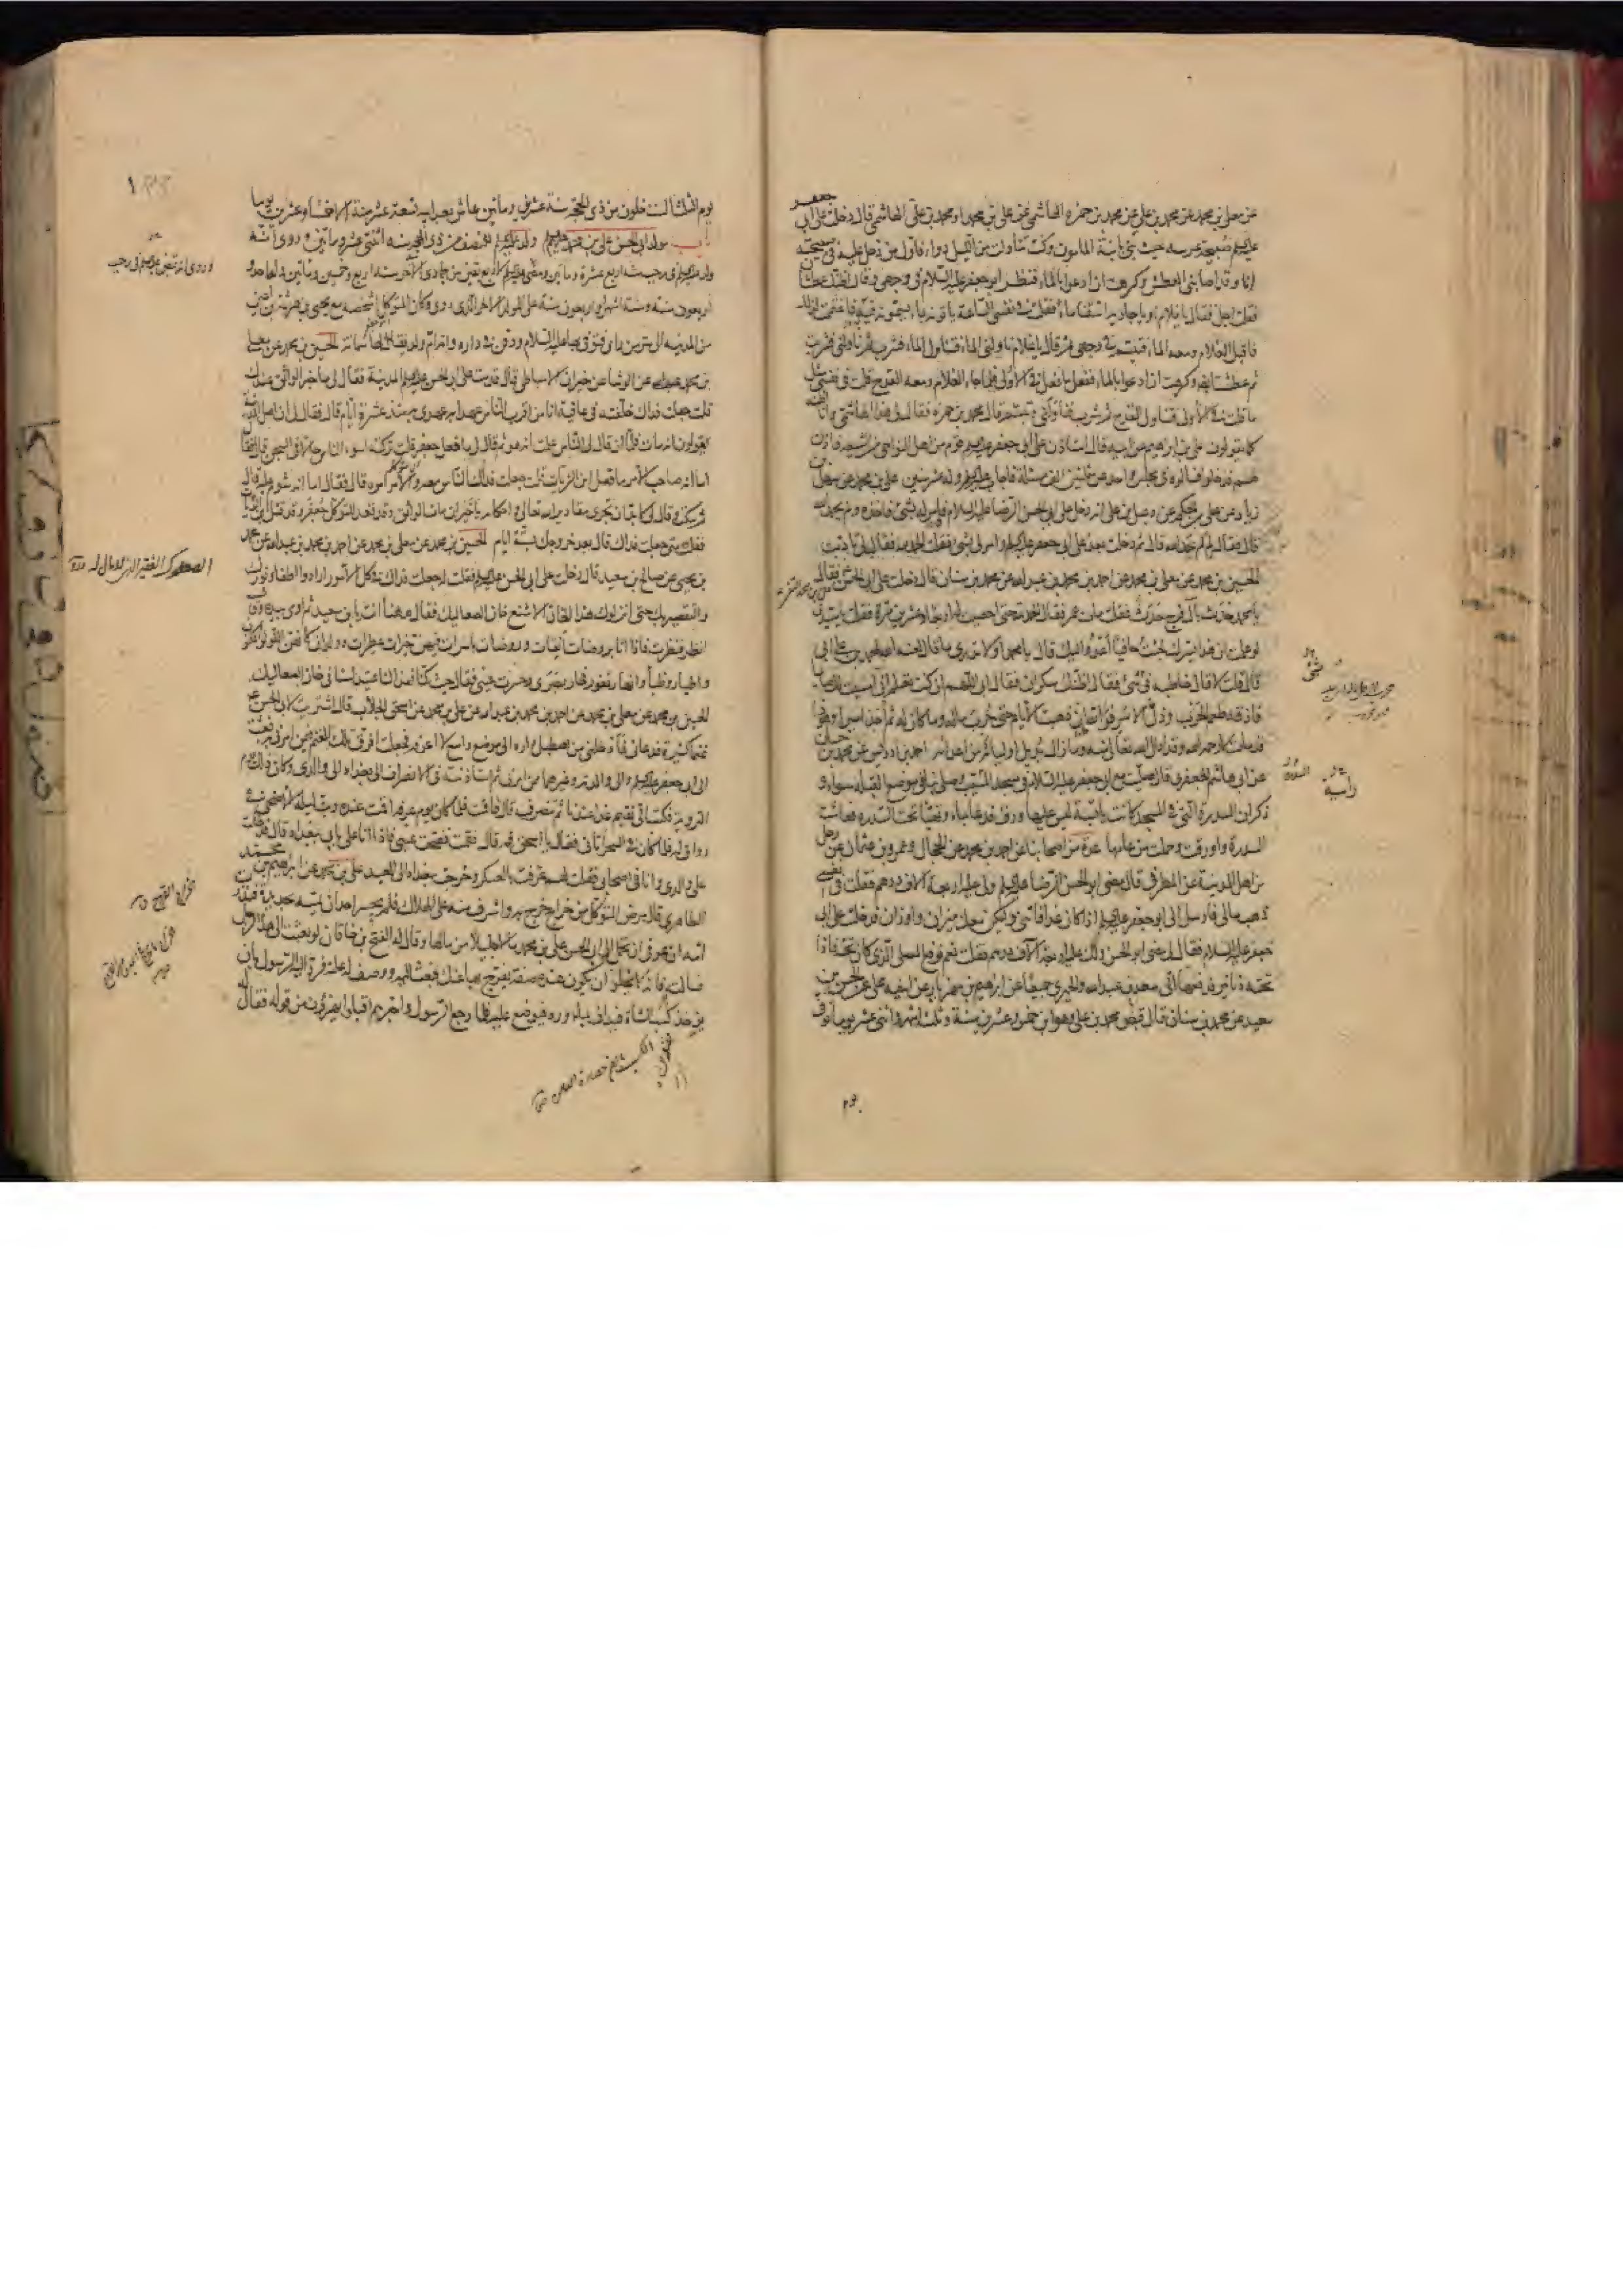 عن معلى بن محمد عن محمد بن علي عن محمد بن حمزة الهاشمي عن علي بن محمد او محمد بن علي الهاشمي قال دخلت على ابي جعفر
عليه صبيحة عرسه حيث بنى بابنة المأمون وكنت تناولت من الليل دواء فاول من دخل عليه في صبيحته
انا وقد اصابني العطش وكرهت ان ادعو بالماء فنظر ابو جعفر عليه السلام في وجهي وقال اظنك عطشان
فقلت اجل فقال يا غلام او يا جارية اسقنا ماء فقلت في نفسي الساعة يأتونه بماء يسمونه به فاغتممت لذلك
فاقبل الغلام ومعه الماء فتبسم في وجهي ثم قال يا غلام ناولني الماء فتناول الماء فشرب ثم ناولني فشربت
ثم عطشت ايضا وكرهت ان ادعو بالماء ففعل ما فعل في الأولى فلما جاء الغلام ومعه القدح قلت في نفسي مثل
ما قلت في الأولى فتناول القدح ثم شرب فناولني وتبسم قال محمد بن حمزة فقال لي هذا الهاشمي وانا اظنه
كما يقولون علي بن ابراهيم عن ابيه قال استأذن على ابي جعفر قوم من اهل النواحي من الشيعة فاذن
لهم فدخلوا فسألوه في مجلس واحد عن ثلثين الف مسئلة فاجاب وله عشر سنين علي بن محمد عن سهل بن
زياد عن علي بن الحكم عن دعبل بن علي انه دخل على ابي الحسن الرضا عليه السلام وامر له بشئ فاخذه ولم يحمد الله
قال فقال لم لم تحمد الله قال ثم دخلت بعد على ابي جعفر وامر لي بشئ فقلت الحمد لله فقال لي تأدبت
الحسين بن محمد عن معلى بن محمد عن احمد بن محمد بن عبد الله عن محمد بن سنان قال دخلت على ابي الحسن فقال
يا محمد حدث بآل فرج حدث فقلت مات عمر فقال الحمد لله حتى احصيت له اربعا وعشرين مرة فقلت يا سيدي
لو علمت ان هذا يسرك لجئت حافيا اعدو اليك قال يا محمد اولا تدري ما قال لعنه الله لمحمد بن علي ابي
قال قلت لا قال خاطبه في شئ فقال اظنك سكران فقال ابي اللهم ان كنت تعلم اني امسيت لك صائما
فاذقه طعم الحرب وذل الاسر فوالله ان ذهبت الأيام حتى حرب ماله وما كان له ثم اخذ اسيرا وهوذا
قد مات لا رحمه الله وقد ادال الله تعالى منه وما زال يديل اولياءه من اعدائه احمد بن ادريس عن محمد بن حسان
عن ابي هاشم الجعفري قال صليت مع ابي جعفر عليه السلام في مسجد المسيب وصلى بنا في موضع القبلة سواء و
ذكر ان السدرة التي في المسجد كانت يابسة ليس عليها ورق فدعا بماء وتهيأ تحت السدرة فعاشت
السدرة واورقت وحملت من عامها عدة من اصحابنا عن احمد بن محمد عن الحجال وعمرو بن عثمان عن رجل
من اهل المدينة عن المطرفي قال مضى ابو الحسن الرضا ولي عليه اربعة آلاف درهم فقلت في نفسي
ذهب مالي فارسل الي ابو جعفر اذا كان غدا فأتني وليكن معك ميزان واوزان فدخلت على ابي
جعفر عليه السلام فقال لي مضى ابو الحسن ولك عليه اربعة آلاف درهم فقلت نعم فرفع المصلى الذي كان تحته فاذا
تحته دنانير فدفعها الي سعد بن عبد الله والحميري جميعا عن ابراهيم بن مهزيار عن اخيه علي عن الحسين بن
سعيد عن محمد بن سنان قال قبض محمد بن علي وهو ابن خمس وعشرين سنة وثلثة اشهر واثنى عشر يوما توفي
يوم الثلثا لست خلون من ذي الحجة سنة عشرين ومأتين عاش بعد ابيه تسعة عشر سنة الا خمسا وعشرين يوما
باب مولد ابي الحسن علي بن محمد ولد للنصف من ذي الحجة سنة اثنتي عشرة ومأتين وروي انه
ولد في رجب سنة اربع عشرة ومأتين ومضى لأربع بقين من جمادي الآخرة سنة اربع وخمسين ومأتين وله احد و
اربعون سنة وستة اشهر او اربعون سنة على المولد الآخر الذي روي وكان المتوكل اشخصه مع يحيى بن هرثمة بن اعين
من المدينة الى سر من رأى فتوفي بها عليه السلام ودفن في داره وامه ام ولد يقال لها سمانة الحسين بن محمد عن معلى
بن محمد عن الوشا عن خيران الاسباطي قال قدمت على ابي الحسن المدينة فقال لي ما خبر الواثق عندك
قلت جعلت فداك خلفته في عافية انا من اقرب الناس عهدا به عهدي به منذ عشرة ايام قال فقال لي ان اهل المدينة
يقولون انه مات فلما ان قال لي الناس علمت انه هو ثم قال لي ما فعل جعفر قلت تركته اسوء الناس حالا في السجن قال فقال
اما انه صاحب الأمر ما فعل ابن الزيات قلت جعلت فداك الناس معه والأمر امره قال فقال اما انه شوم عليه قال
ثم سكت وقال لي لا بد ان تجري مقادير الله تعالى واحكامه يا خيران مات الواثق وقد قعد المتوكل جعفر وقد قتل ابن الزيات
فقلت متى جعلت فداك قال بعد خروجك بستة ايام الحسين بن محمد عن معلى بن محمد عن احمد بن محمد بن عبد الله عن محمد
بن يحيى عن صالح بن سعيد قال دخلت على ابي الحسن فقلت له جعلت فداك في كل الأمور ارادوا اطفاء نورك
والتقصير بك حتى انزلوك هذا الخان الأشنع خان الصعاليك فقال ههنا انت يا بن سعيد ثم اومى بيده وقال
انظر فنظرت فاذا انا بروضات آنقات وروضات باسرات فيهن خيرات عطرات وولدان كأنهن اللؤلؤ المكنون
واطيار وظباء وانهار تفور فحار بصري وحسرت عيني فقال حيث كنا فهذا لنا عتيد لسنا في خان الصعاليك
الحسين بن محمد عن معلى بن محمد عن احمد بن محمد بن عبد الله عن علي بن محمد عن اسحق الجلاب قال اشتريت لأبي الحسن
غنما كثيرة فدعاني فأدخلني من اصطبل داره الى موضع واسع لا اعرفه فجعلت افرق تلك الغنم فيمن امرني به فبعثت
الى ابي جعفر والى والدته وغيرهما ممن امرني ثم استأذنته في الانصراف الى بغداد الى والدي وكان ذلك يوم
التروية فكتب الي تقيم غدا عندنا ثم تنصرف قال فاقمت فلما كان يوم عرفة اقمت عنده وبت ليلة الأضحى في
رواق له فلما كان في السحر اتاني فقال يا اسحق قم قال فقمت ففتحت عيني فاذا انا على بابي ببغداد قال فدخلت
على والدي وانا في اصحابي فقلت لهم عرفت بالعسكر وخرجت ببغداد الى العيد علي بن محمد عن ابراهيم بن محمد
الطاهري قال مرض المتوكل من خراج خرج به واشرف منه على الهلاك فلم يجسر احد ان يمسه بحديدة فنذرت
امه ان عوفي ان تحمل الى ابي الحسن علي بن محمد مالا جليلا من مالها وقال له الفتح بن خاقان لو بعثت الى هذا الرجل
فسألته فانه لا يخلو ان يكون عنده صفة يفرج بها عنك فبعث اليه ووصف له علته فرد اليه الرسول بان
يؤخذ كسب الشاة فيداف بماء ورد فيوضع عليه فلما رجع الرسول واخبرهم اقبلوا يهزؤن من قوله فقال
وروي انه قبض في رجب
الصعلوك الفقير الذي لا مال له
السدرة